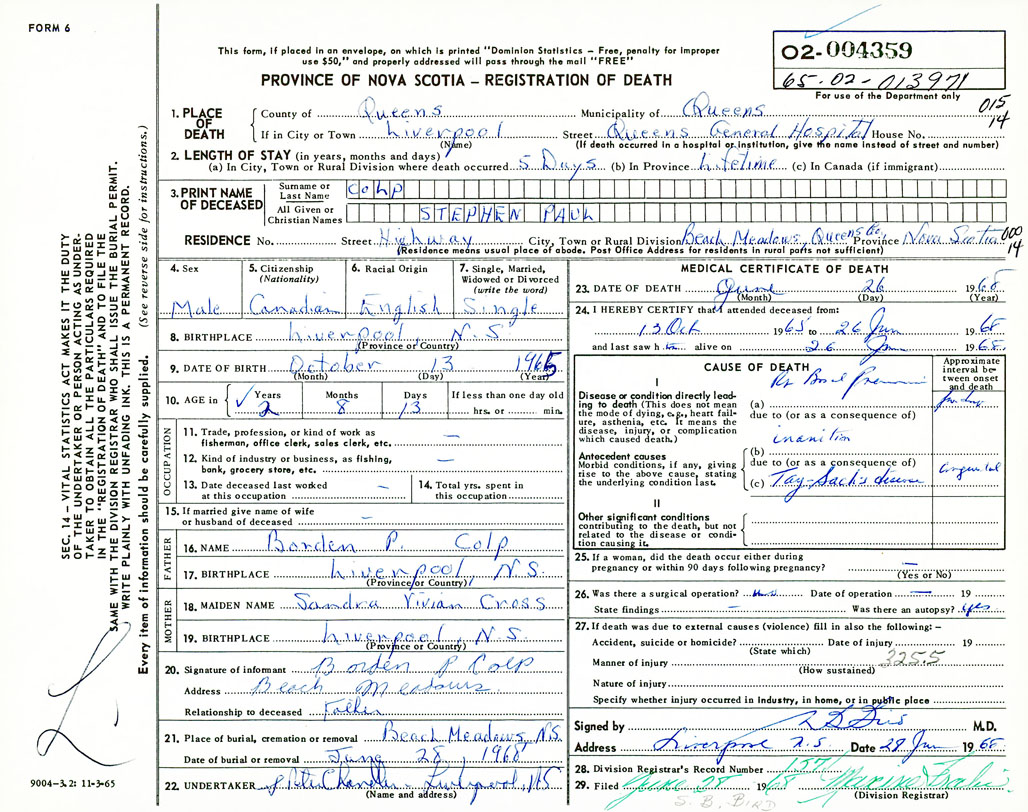 FORM 6
This form, if placed in an envelope, on which is printed "Dominion Statistics – Free, penalty for improper
use $50," and properly addressed will pass through the mail "FREE"
PROVINCE OF NOVA SCOTIA – REGISTRATION OF DEATH
02-004359
65-02-013971
For use of the Department only
015
14
1. PLACE OF DEATH
County of Queens Municipality of Queens
If in City or Town Liverpool Street Queens General Hospital House No.
(Name) (If death occurred in a hospital or institution, give the name instead of street and number)
2. LENGTH OF STAY (in years, months and days)
(a) In City, Town or Rural Division where death occurred 5 Days (b) In Province Lifetime (c) In Canada (if immigrant)
3. PRINT NAME OF DECEASED
Surname or Last Name COLP
All Given or Christian Names STEPHEN PAUL
RESIDENCE No. Street Highway City, Town or Rural Division Beach Meadows, Queens Co. Province Nova Scotia
000
14
(Residence means usual place of abode. Post Office Address for residents in rural parts not sufficient)
4. Sex Male
5. Citizenship (Nationality) Canadian
6. Racial Origin English
7. Single, Married, Widowed or Divorced (write the word) Single
8. BIRTHPLACE Liverpool N.S.
(Province or Country)
9. DATE OF BIRTH October 13 1965
(Month) (Day) (Year)
10. AGE in Years Months Days If less than one day old
✓ 2 8 13 hrs. or min.
OCCUPATION
11. Trade, profession, or kind of work as
fisherman, office clerk, sales clerk, etc. —
12. Kind of industry or business, as fishing,
bank, grocery store, etc. —
13. Date deceased last worked
at this occupation –
14. Total yrs. spent in
this occupation
15. If married give name of wife
or husband of deceased –
FATHER
16. NAME Borden P. Colp
17. BIRTHPLACE Liverpool N.S.
(Province or Country)
MOTHER
18. MAIDEN NAME Sandra Vivian Cross
19. BIRTHPLACE Liverpool, N.S.
(Province or Country)
20. Signature of informant Borden P Colp
Address Beach Meadows
Relationship to deceased Father
21. Place of burial, cremation or removal Beach Meadows, N.S.
Date of burial or removal June 28, 1968
22. UNDERTAKER Chandler Liverpool, N.S.
(Name and address)
MEDICAL CERTIFICATE OF DEATH
23. DATE OF DEATH June 26 1968
(Month) (Day) (Year)
24. I HEREBY CERTIFY that I attended deceased from:
13 Oct 1965 to 26 Jun 1968
and last saw h im alive on 26 Jun 1968
CAUSE OF DEATH
Approximate interval between onset and death
I
Disease or condition directly leading to death (This does not mean
the mode of dying, e.g., heart failure, asthenia, etc. It means the
disease, injury, or complication
which caused death.)
(a)
due to (or as a consequence of)
inanition
Antecedent causes
Morbid conditions, if any, giving
rise to the above cause, stating
the underlying condition last.
(b)
due to (or as a consequence of)
(c) Tay-Sach's disease congenital
II
Other significant conditions
contributing to the death, but not
related to the disease or condition causing it.
25. If a woman, did the death occur either during
pregnancy or within 90 days following pregnancy? —
(Yes or No)
26. Was there a surgical operation? Date of operation — 19
State findings – Was there an autopsy? yes
27. If death was due to external causes (violence) fill in also the following:–
Accident, suicide or homicide? Date of injury 19
(State which)
Manner of injury 325.5
(How sustained)
Nature of injury
Specify whether injury occurred in industry, in home, or in public place
Signed by M.D.
Address Liverpool N.S Date 28 Jun 1968
28. Division Registrar's Record Number 157
29. Filed June 28 1968
(Division Registrar)
S. B. BIND
SEC. 14 – VITAL STATISTICS ACT MAKES IT THE DUTY
OF THE UNDERTAKER OR PERSON ACTING AS UNDERTAKER TO OBTAIN ALL THE PARTICULARS REQUIRED
IN THE "REGISTRATION OF DEATH" AND TO FILE THE
SAME WITH THE DIVISION REGISTRAR WHO SHALL ISSUE THE BURIAL PERMIT.
WRITE PLAINLY WITH UNFADING INK. THIS IS A PERMANENT RECORD.
Every item of information should be carefully supplied. (See reverse side for instructions.)
9004–3.2: 11-3-65